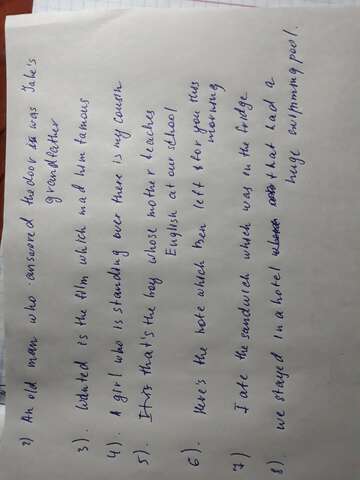 2) An old man who answered the door was Jake's
grandfather
3). Wanted is the film which mad him famous
4). A girl who is standing over there is my cousin
5). that's the boy whose mother teaches
English at our school
6). Here's the note which Ben left for you this
morning
7) I ate the sandwich which was in the fridge
8). We stayed in a hotel that had a
huge swimming pool.